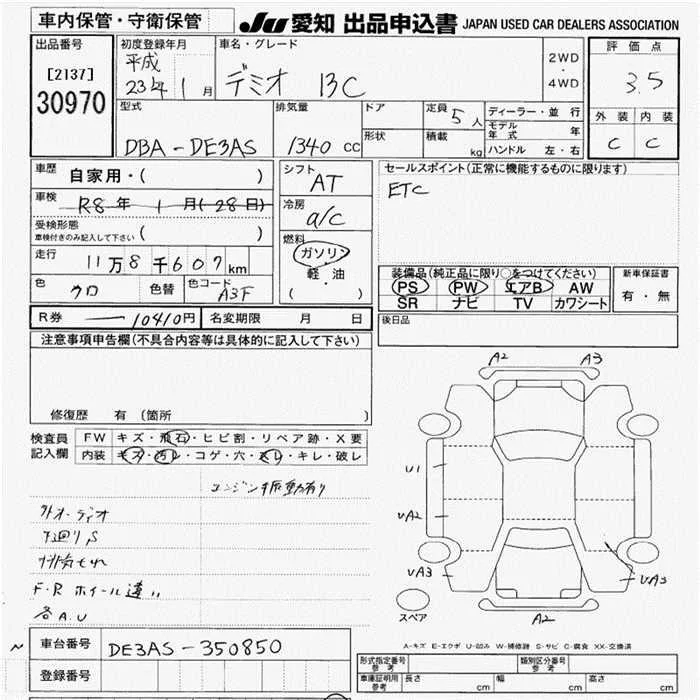 車内保管・守衛保管
JU 愛知 出品申込書 JAPAN USED CAR DEALERS ASSOCIATION
出品番号
[2137]
30970
初度登録年月
平成
23年 1月
車名・グレード
デミオ 13C
2WD
・
4WD
評価点
3.5
外装 内装
C C
型式
DBA-DE3AS
排気量
1340 cc
ドア
形状
定員 5人
積載 kg
ディーラー・並行
モデル年式 年
ハンドル 左・右
車歴
自家用・( )
車検
R8年 1月(28日)
受検形態
車検付きのみ記入して下さい ( )
走行
11万8千607km
色 クロ 色替 色コード A3F
シフト
AT
冷房
a/c
燃料
ガソリン
軽・油
( )
セールスポイント(正常に機能するものに限ります)
ETC
装備品(純正品に限り○をつけてください)
PS PW エアB AW
SR ナビ TV カワシート
新車保証書
有・無
R券 10410円 名変期限 月 日
後日品
注意事項申告欄(不具合内容等は具体的に記入して下さい)
修復歴 有 (箇所 )
検査員記入欄
FW キズ・飛石・ヒビ割・リペア跡・X要
内装 キズ・汚レ・コゲ・穴・スレ・キレ・破レ
エンジン振動有り
外オーディオ
下廻りS
排気もれ
F・R ホイール違い
各A.U
A2 A3
U1
UA2
UA3 UA3
A2
スペア
A-キズ E-エクボ U-凹み W-補修跡 S-サビ C-腐食 XX-交換済
車台番号 DE3AS-350850
登録番号
形式指定番号 参考
類別区分番号 参考
車庫証明用 参考 長さ cm 幅 cm 高さ cm